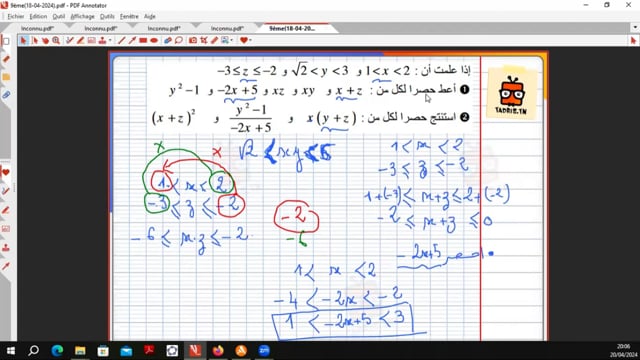 9ème(18-04-2024).pdf - PDF Annotator
Fichier Edition Affichage Document Outils Fenêtre Aide
Inconnu.pdf* Inconnu.pdf* Inconnu.pdf* Inconnu.pdf* 9ème(18-04-20...
إذا علمت أن : 1<x<2 و √2<y<3 و -3≤z≤-2
❶ أعط حصرا لكل من : x+z و xy و xz و -2x+5 و y²-1
❷ استنتج حصرا لكل من : x(y+z) و (y²-1)/(-2x+5) و (x+z)²
TADRIS.TN
x x
√2 < xy < 6
1 < x < 2
-3 ≤ z ≤ -2
-6 ≤ x.z ≤ -2
-2
-6
1 < x < 2
-4 < -2x < -2
1 < -2x+5 < 3
1 < x < 2
-3 ≤ z ≤ -2
1+(-3) ≤ x+z ≤ 2+(-2)
-2 ≤ x+z ≤ 0
-2x+5
20:06
20/04/2024